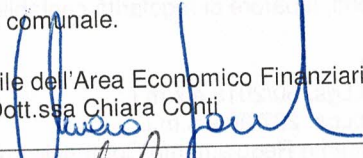 comunale.
ile dell'Area Economico Finanziari
Dott.ssa Chiara Conti